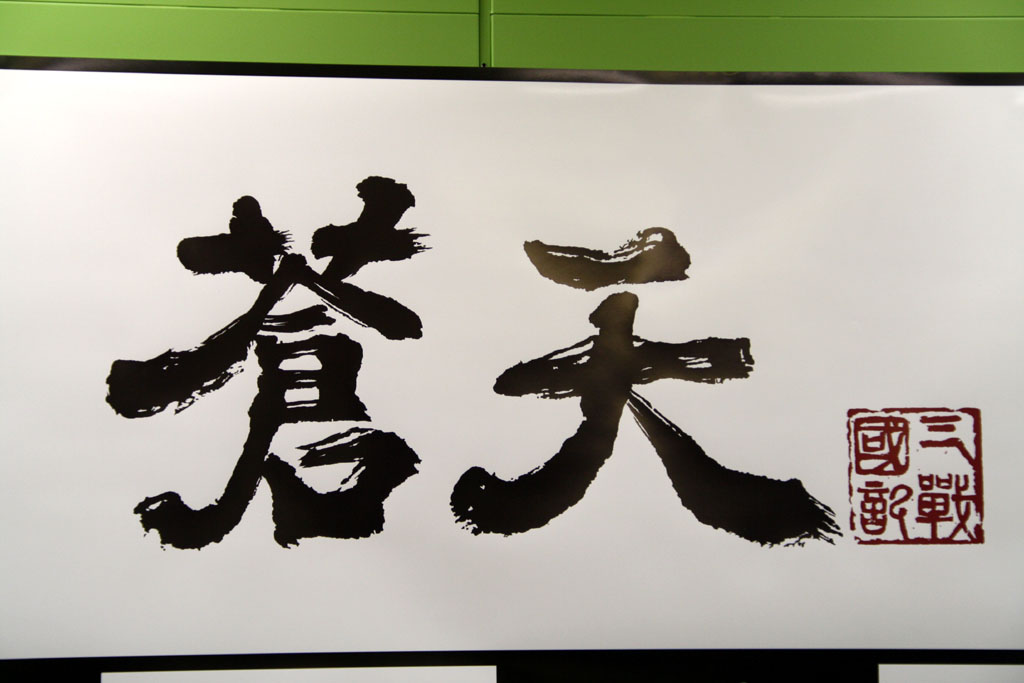 蒼天
三國
戰記